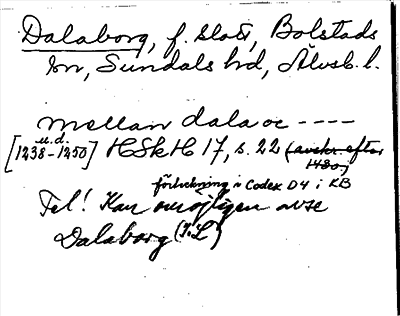 Dalaborg, f. slott, Bolstads
sn, Sundals hd, Älvsb. l.
mellan dala oc ----
u.d.
[1238-1250] HSkH 17, s. 22 (avskr. efter
1480)
förteckning i Codex D4 i KB
Fel! Kan omöjligen avse
Dalaborg (I.L)